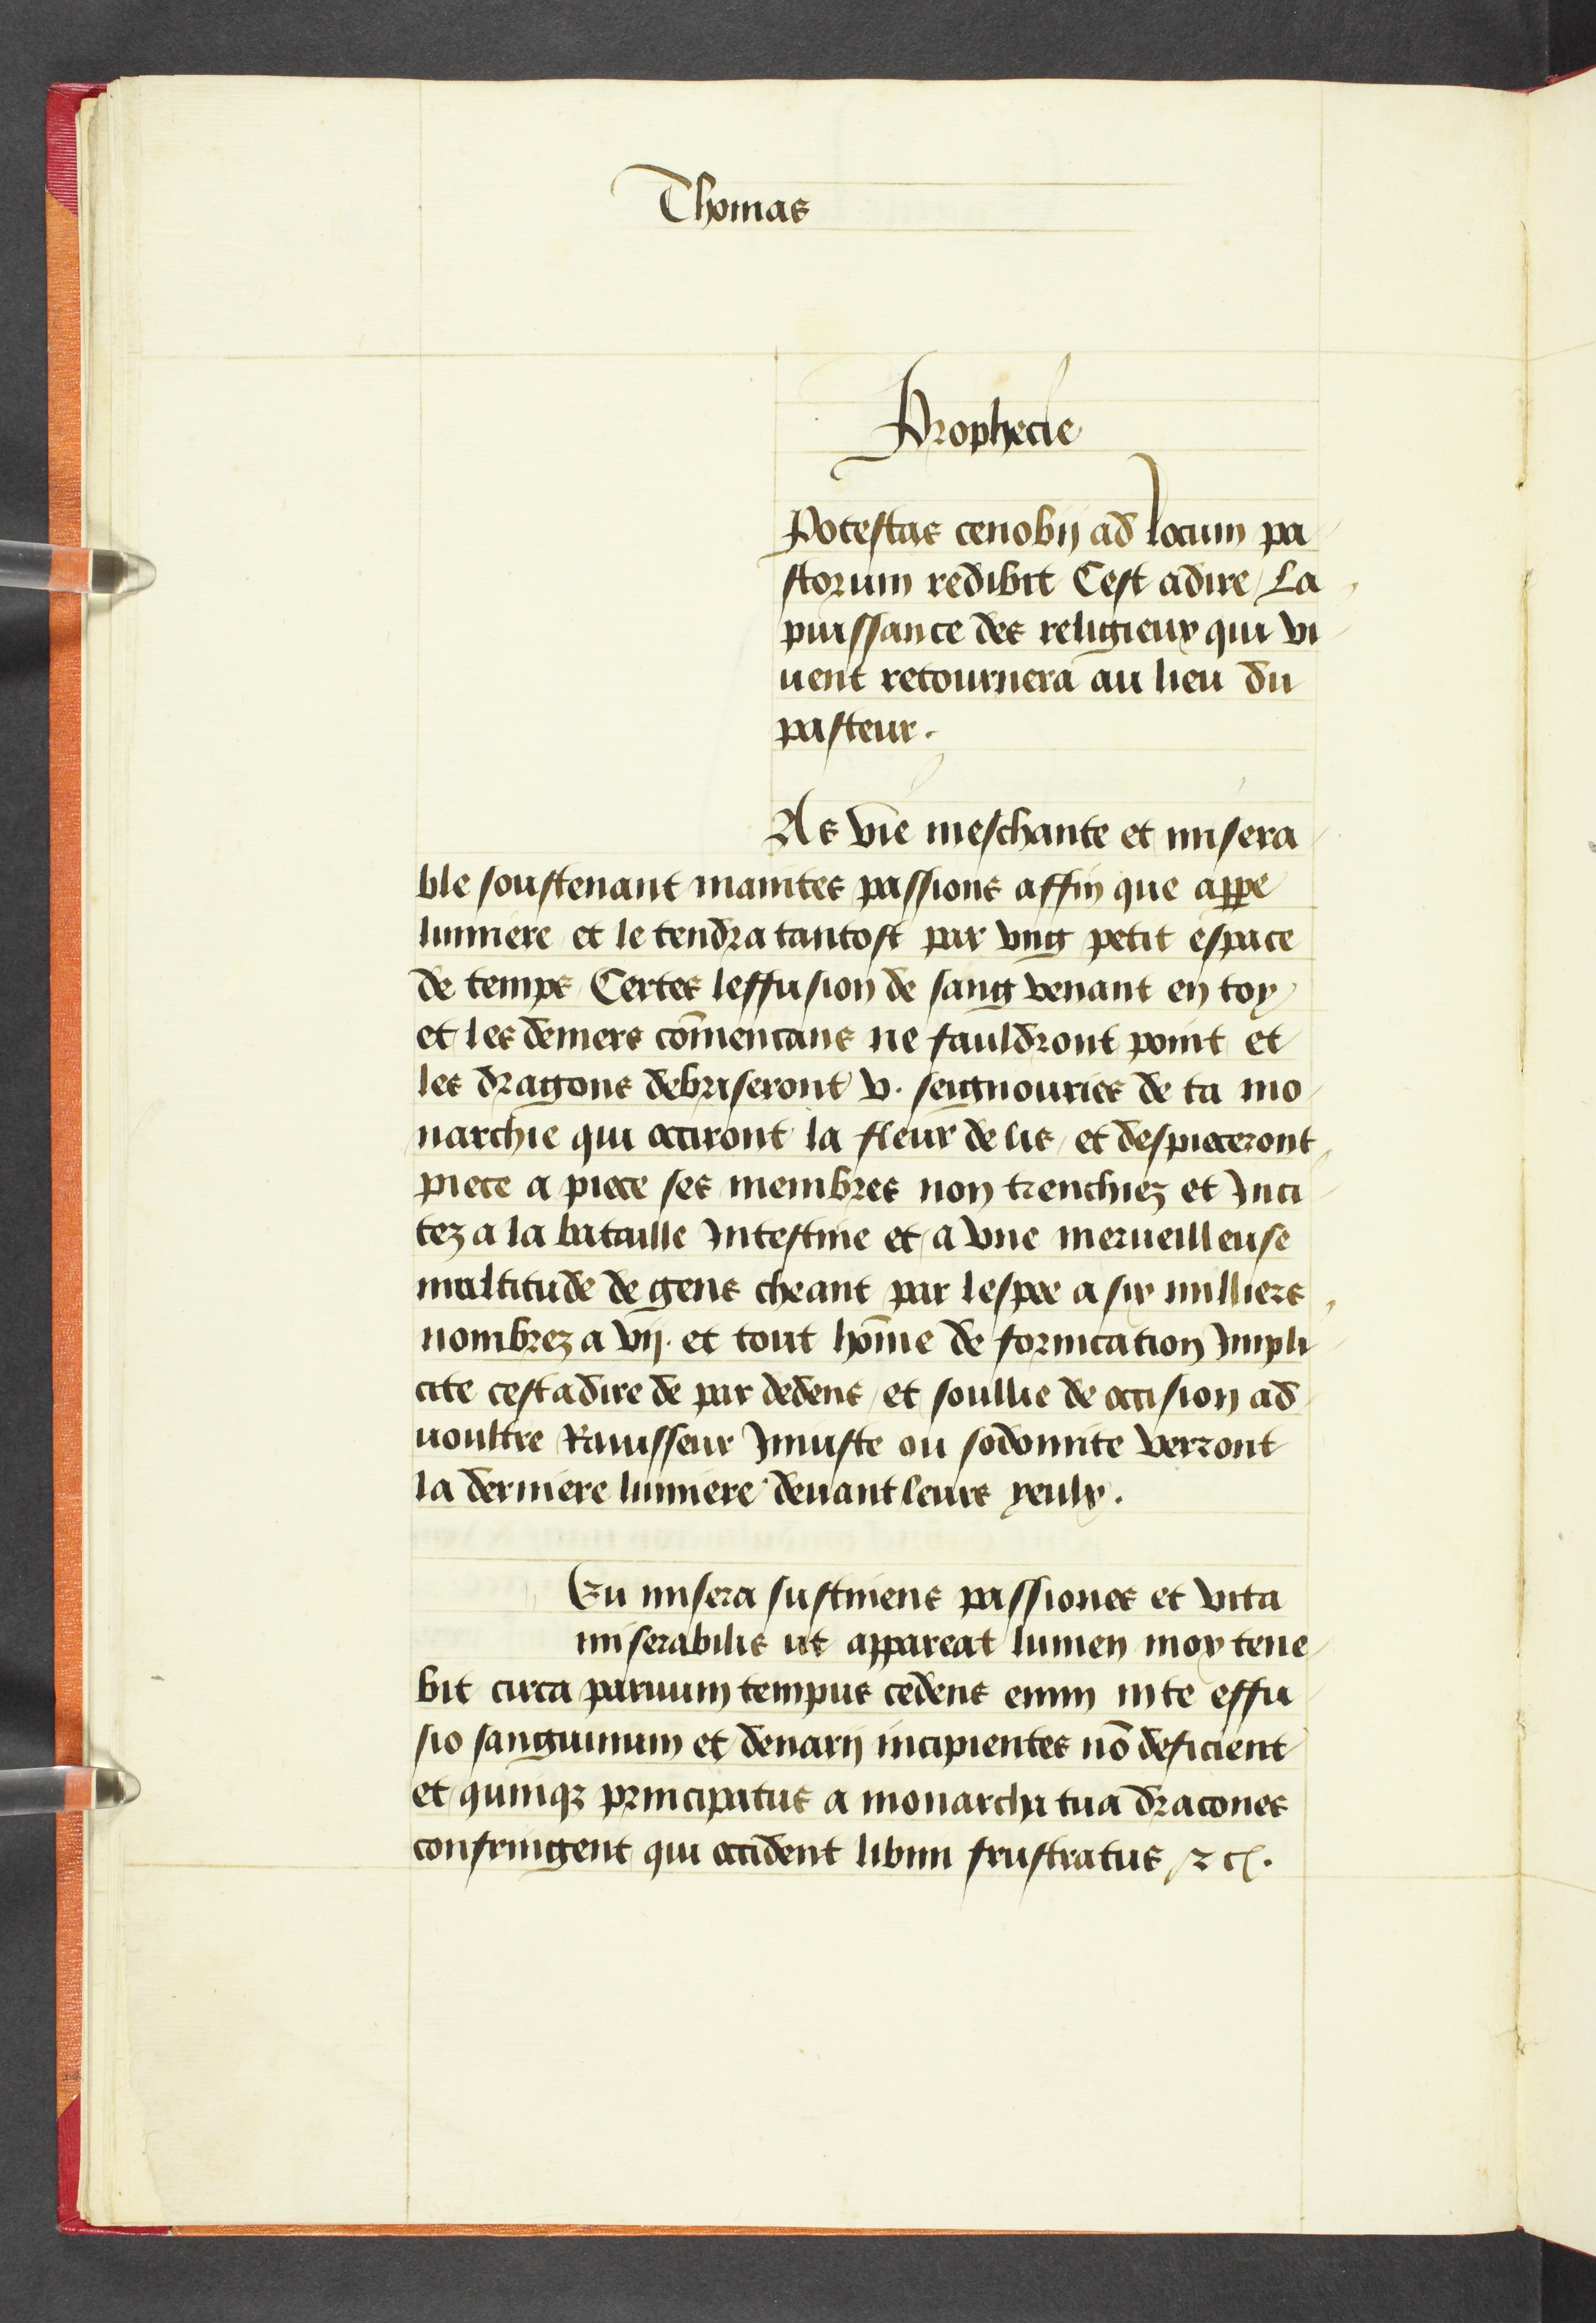 Thomas
Prophecie
Potestas cenobij ad locum pa
storum redibit Cest adire / La
puissance des religieux qui vi
uent retournera au lieu du
pasteur.
As vie meschante et misera
ble soustenant maintes passions affin que appe
lumiere et le tendra tantost par vng petit espace
de temps Certes leffusion de sang venant en toy
et les deniers cōmencans ne fauldront point et
les dragons debriseront v. seignouries de ta mo
narchie qui occiront la fleur de lis / et despieceront
piece a piece ses membres non trenchiez et Inci
tez a la bataille Intestine et a vne merueilleuse
multitude de gens cheant par lespee a six milliers
nombrez a vij. et tout hōme de fornication Impli
cite cestadire de par dedens / et soullie de occision ad
uoultre Rauisseur Iniuste ou sodomite verront
la derniere lumiere deuant leurs yeulx.
Eu misera sustinens passiones et vita
miserabilis ut appareat lumen mox tene
bit circa paruum tempus cedens enim inte effu
sio sanguinum et denarij incipientes nō deficient
et quinqz principatus a monarchia tua dracones
confringent qui occident libum frustratus / ⁊c.